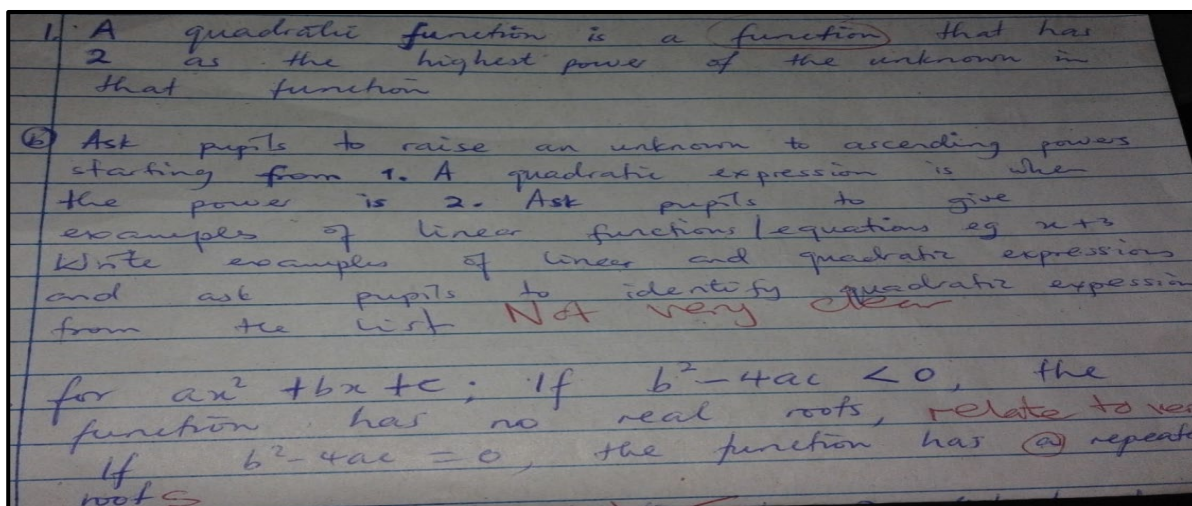 1. A quadratic function is a function that has
2 as the highest power of the unknown in
that function
(b) Ask pupils to raise an unknown to ascending powers
starting from 1. A quadratic expression is when
the power is 2. Ask pupils to give
examples of linear functions/equations eg x+3
Write examples of linear and quadratic expressions
and ask pupils to identify quadratic expession
from the list Not very clear
for ax² +bx +c; If b²-4ac <0, the
function has no real roots, relate to
If b²-4ac = 0, the function has a repeate
roots